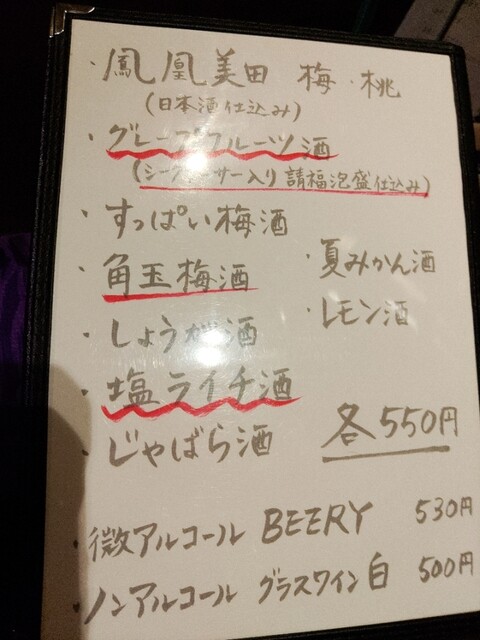 ・鳳凰美田 梅・桃
(日本酒仕込み)
・グレープフルーツ酒
(シークヮーサー入り 請福泡盛仕込み)
・すっぱい梅酒
・角玉梅酒
・しょうが酒
・塩ライチ酒
・じゃばら酒
・夏みかん酒
・レモン酒
各550円
・微アルコール BEERY 530円
・ノンアルコール グラスワイン 白 500円